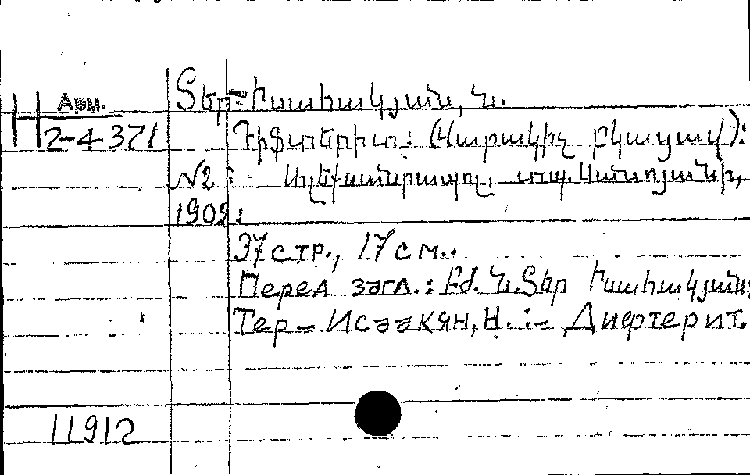 Арм.
Н 2-4371
Տեր-Իսահակյան, Ն.
Դիֆտերիտ: (Վարակիչ բկացավ):
№2: Ալեքսանդրապոլ, տպ.
1902:
37 стр., 17 см..
Перед загл.: Բժ. Ն. Տեր Իսահակյան:
Тер-Исаакян, Н. :- Дифтерит.
11912